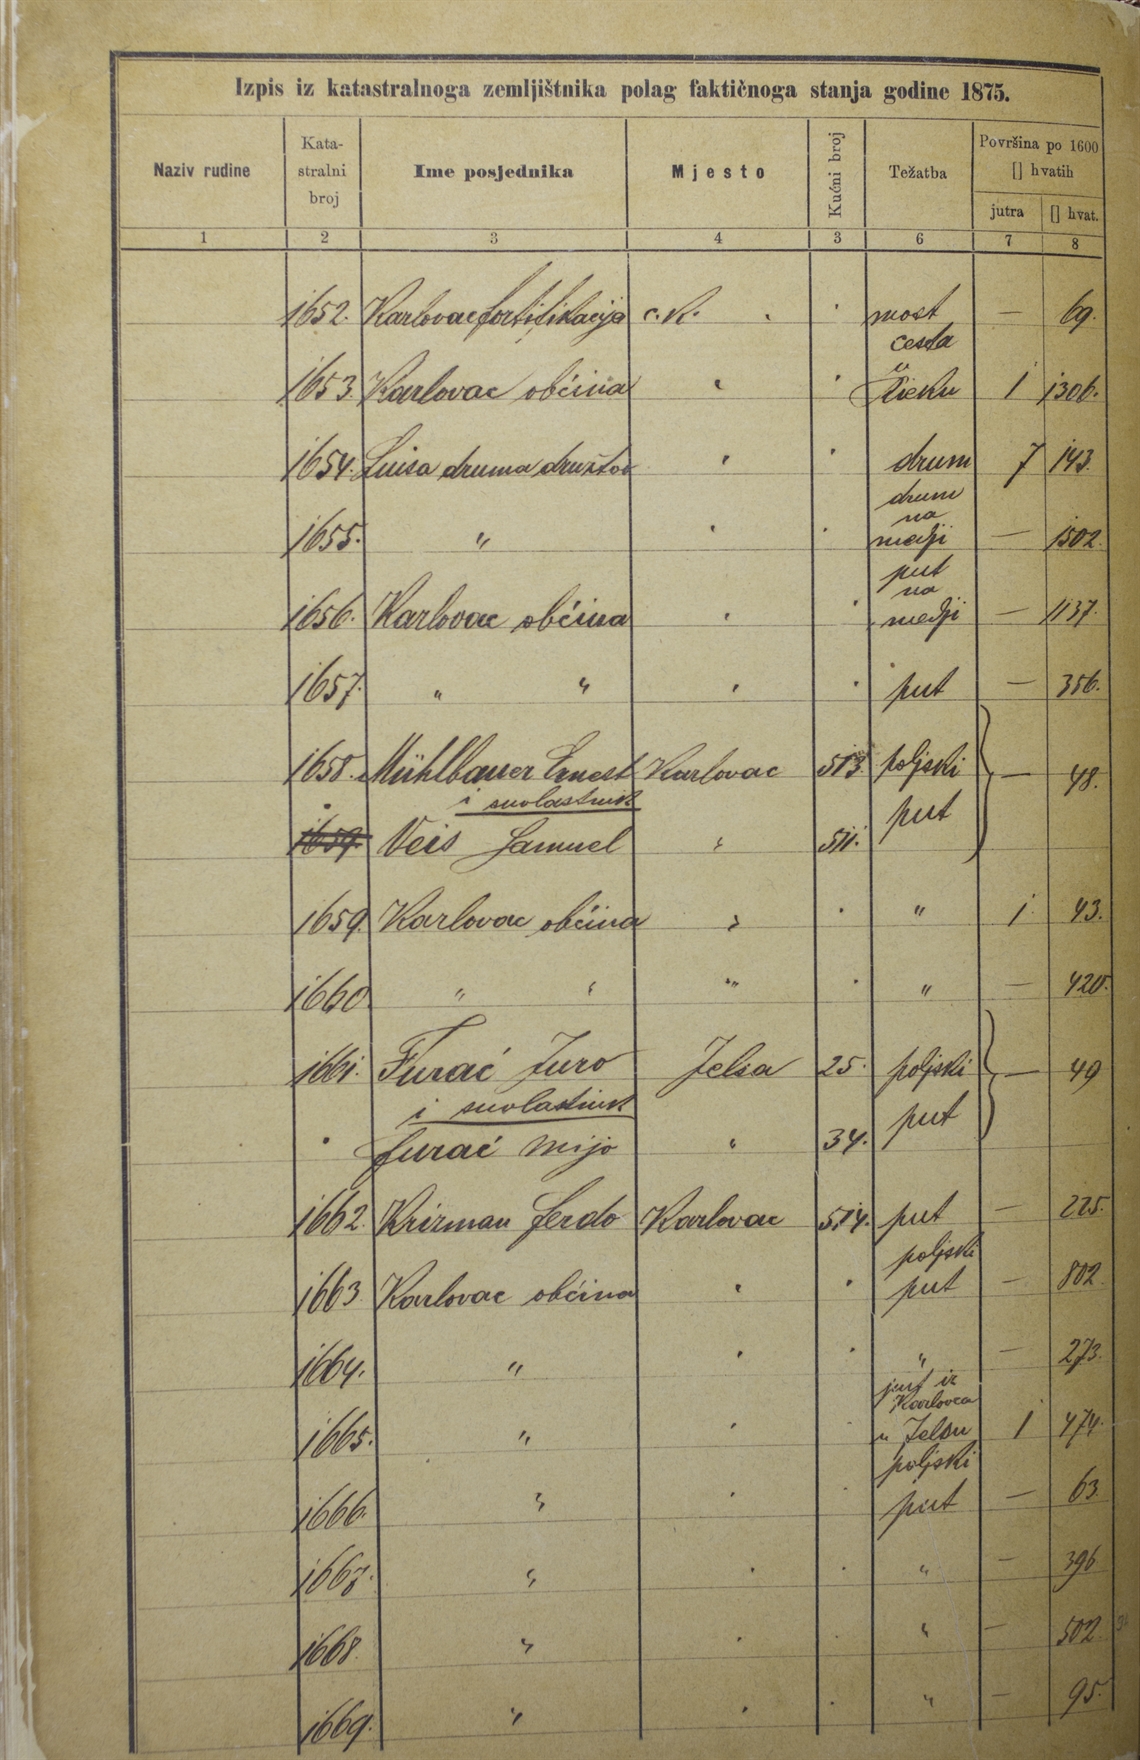 Izpis iz katastralnoga zemljištnika polag faktičnoga stanja godine 1875.
Naziv rudine Kata-stralni broj Ime posjednika Mjesto Kućni broj Težatba Površina po 1600 [] hvatih jutra [] hvat.
1 2 3 4 3 6 7 8
1652. Karlovac fortifikacija c. k. . . most — 69.
cesta
u
1653. Karlovac občina " . rieku 1 1306.
1654. Luisa druma družtvo " . drum 7 143.
drum
na
1655. " " . medji — 1502.
put
na
1656. Karlovac občina " . medji — 1137.
1657. " " " . put — 356.
1658. Mühlbauer Ernest Karlovac 513. poljski — 48.
i suvlastnik put
1659. Veis Samuel " 511.
1659. Karlovac občina " . " 1. 43.
1660. " " " . " — 420.
1661. Furać Juro Jelsa 25. poljski — 49
i suvlastnik put
Furać Mijo " 34.
1662. Krizman Ferdo Karlovac 514. put — 225.
poljski
1663 Karlovac občina " . put — 802.
1664. " " . " — 273.
put iz
Karlovca
1665. " " u Jelsu 1 474.
poljski
1666. " " . put — 63.
1667. " " . " — 396
1668. " " . " — 502.
1669. " " . " — 95.